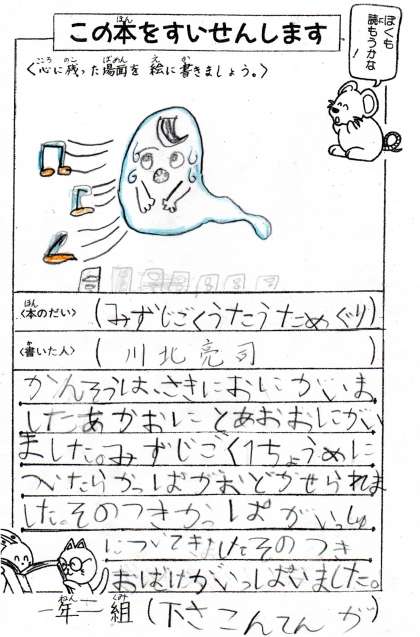 この本をすいせんします
ほん
ぼくも
読もうかな!
よ
〈心に残った場面を 絵に書きましょう。〉
こころ のこ ばめん え か
ほん
〈本のだい〉 (みずじごくうたうためぐり)
〈書いた人〉 (川北亮司)
かんそうは、さきにおにがいま
したあかおにとあおおにがい
ました。みずじごく1ちょうめに
ついたらかっぱがおどかせられま
した。そのつきかっぱがいっしょ
についてきましたそのつき
おばけがいっぱいました。
ねん くみ
一年 組(下さこんてんが)